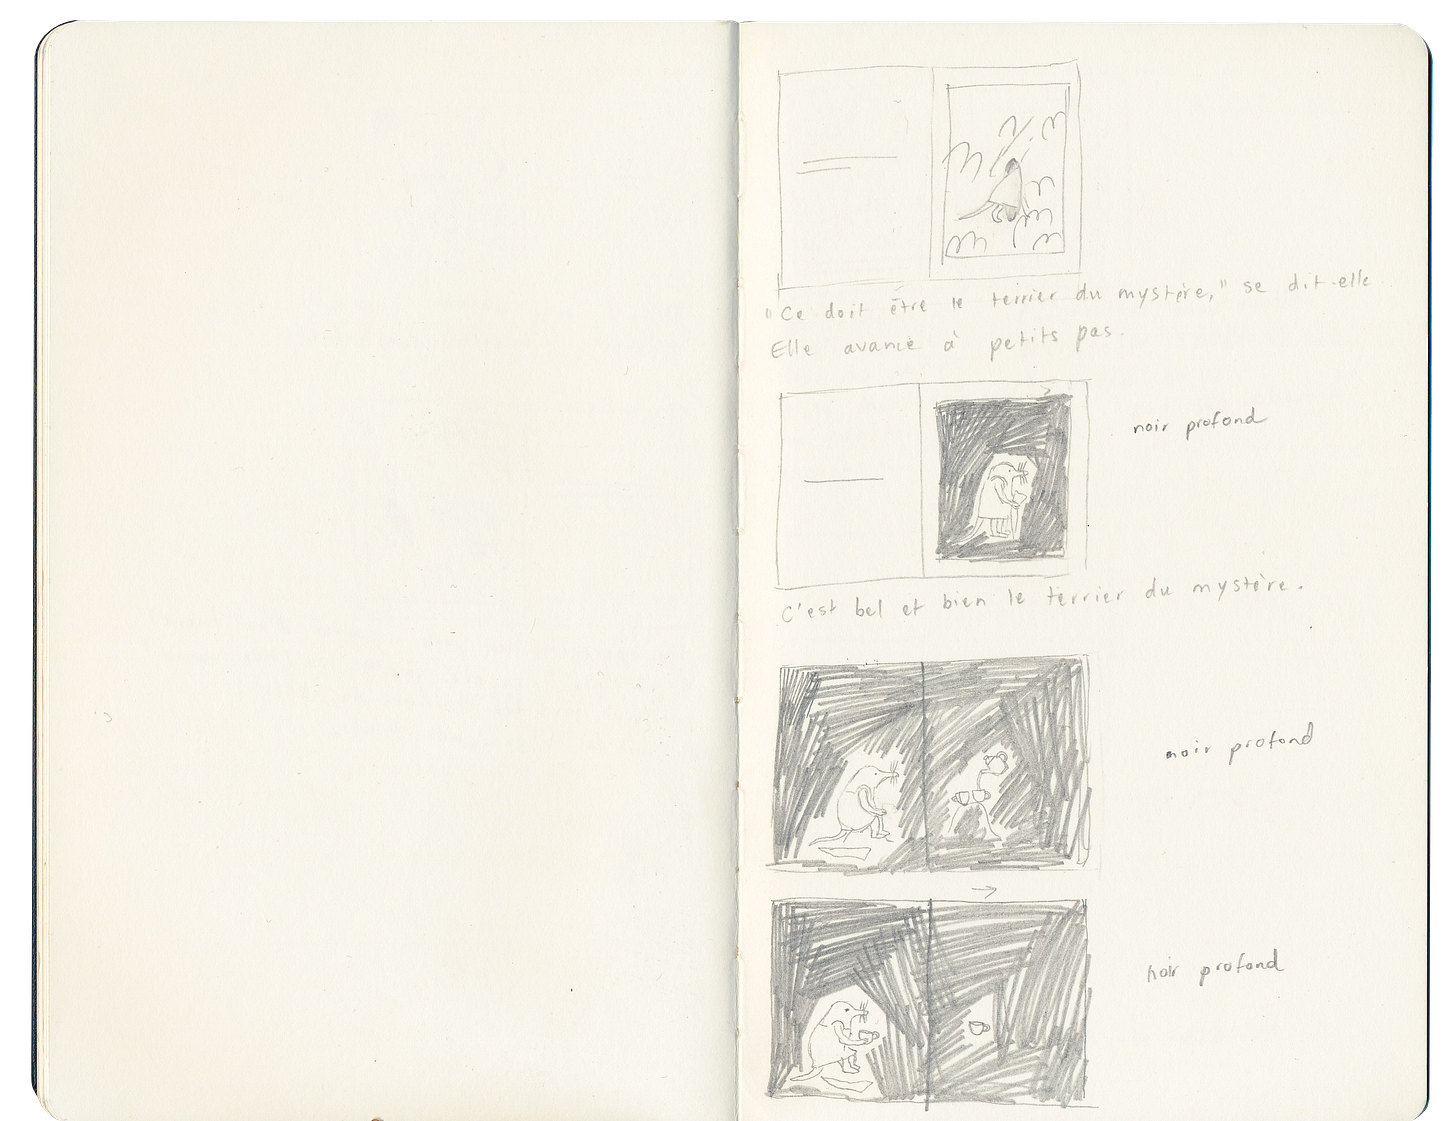 "Ce doit être le terrier du mystère," se dit-elle
Elle avance à petits pas.
noir profond
C'est bel et bien le terrier du mystère.
noir profond
noir profond